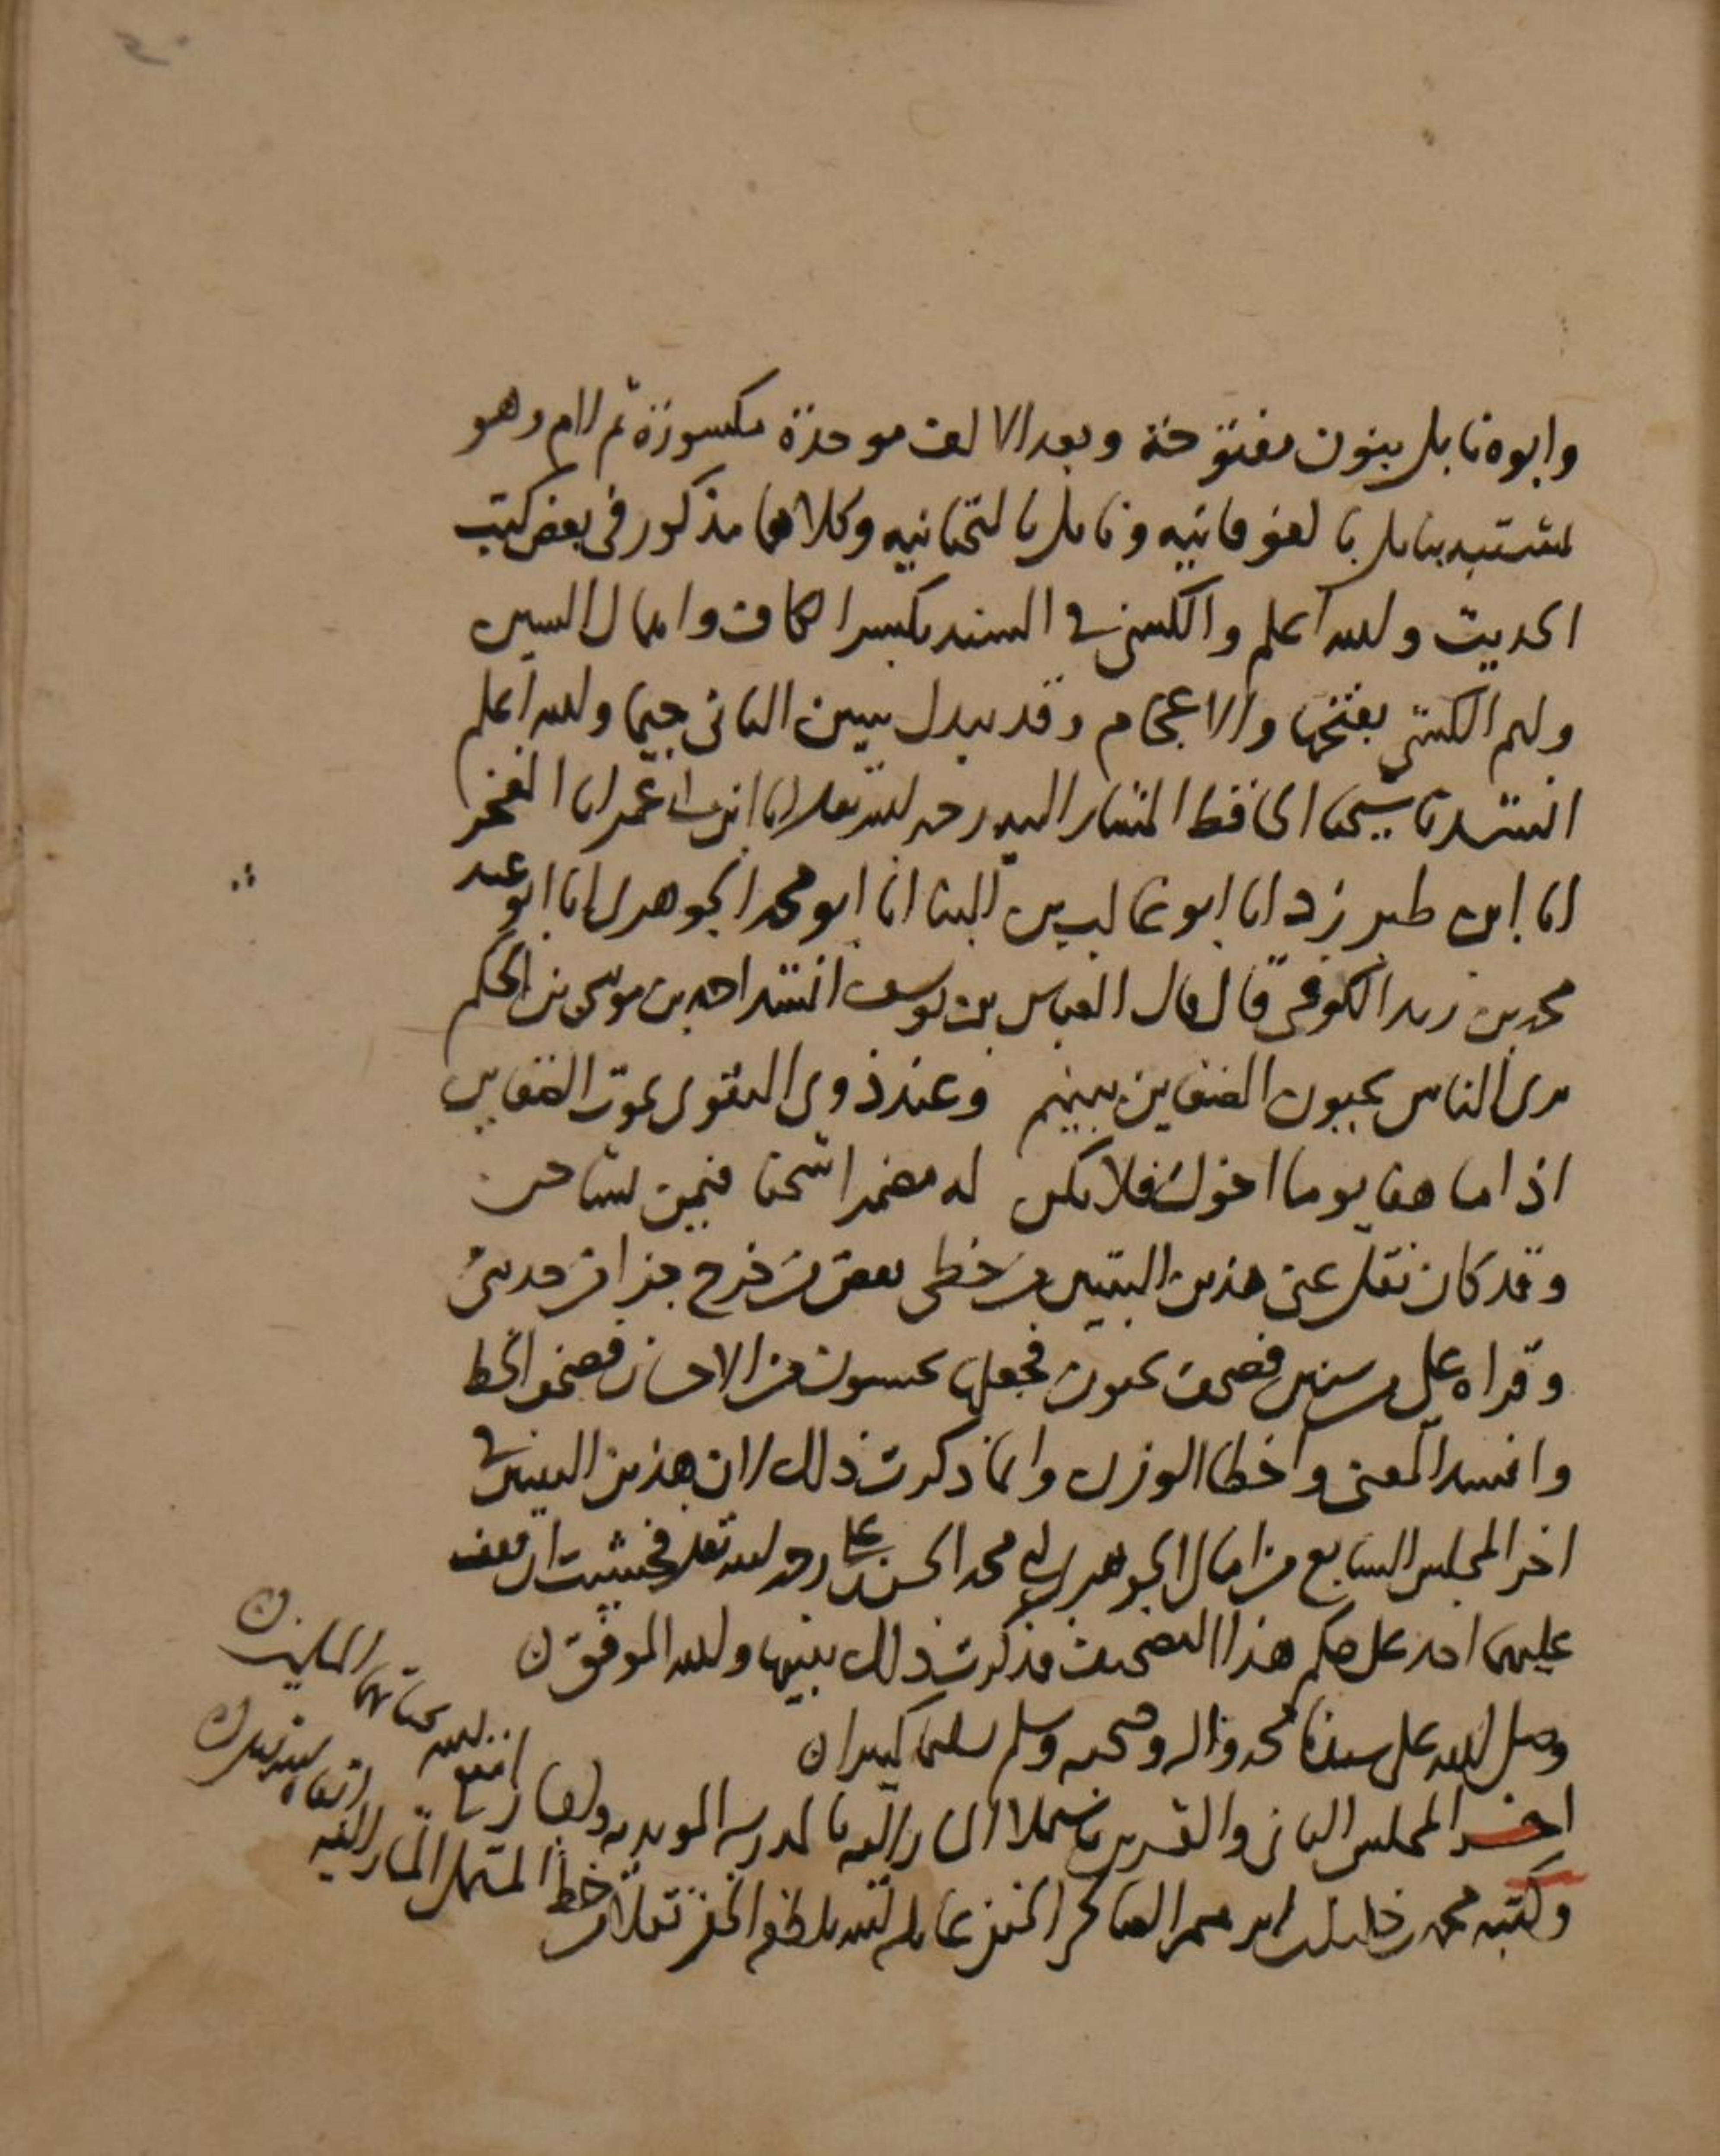 وابوه نابل بنون مفتوحة وبعد الالف موحدة مكسورة ثم لام وهو
مشتبه بنابل بالفوقانيه ونايل بالتحتانيه وكلاهما مذكور في بعض كتب
الحديث والله اعلم والكسى في السند بكسر الكاف واهمال السين
ولهم الكشى بفتحها والاعجام وقد يبدل الثانى جيما والله اعلم
انشدنا شيخنا الحافظ المشار اليه رحمه الله تعالى انا عمر انا الفخر
انا ابن طبرزد انا ابو غالب بن البنا انا ابو محمد الجوهرى انا ابو عبد
محمد بن زيد الكوفى قال قال العباس بن يوسف انشد احمد بن موسى بن الحكم
يرى الناس يحيون الضغاين بينهم وعند ذوى التقوى تموت الضغاين
اذا ما هفا يوما اخوك فلا تكن له مضمرا شحنا فيمن يشاحن
وقد كان نقل عنى هذين البيتين من خطى بعض من خرج جزا من حديثى
وقراه على فصحف يحيون فجعلها يحسبون فصحف الخط
وافسد المعنى واخطا الوزن وانما ذكرت ذلك لان هذين البيتين في
اخر المجلس السابع من امالى الجوهرى ابى محمد الحسن بن على رحمه الله تعالى فخشيت ان يقف
عليهما احد على حكم هذا التصحيف فذكرت ذلك تنبيها والله الموفق
وصلى الله على سيدنا محمد واله وصحبه وسلم تسليما كثيرا
اخر المجلس الثانى والعشرين بالمدرسه المويديه
وكتبه محمد بن عمر الحنفى عامله الله بلطفه الخفى نقلا من خط المستملى المشار اليه
نفع الله بحياتهما المسلمين